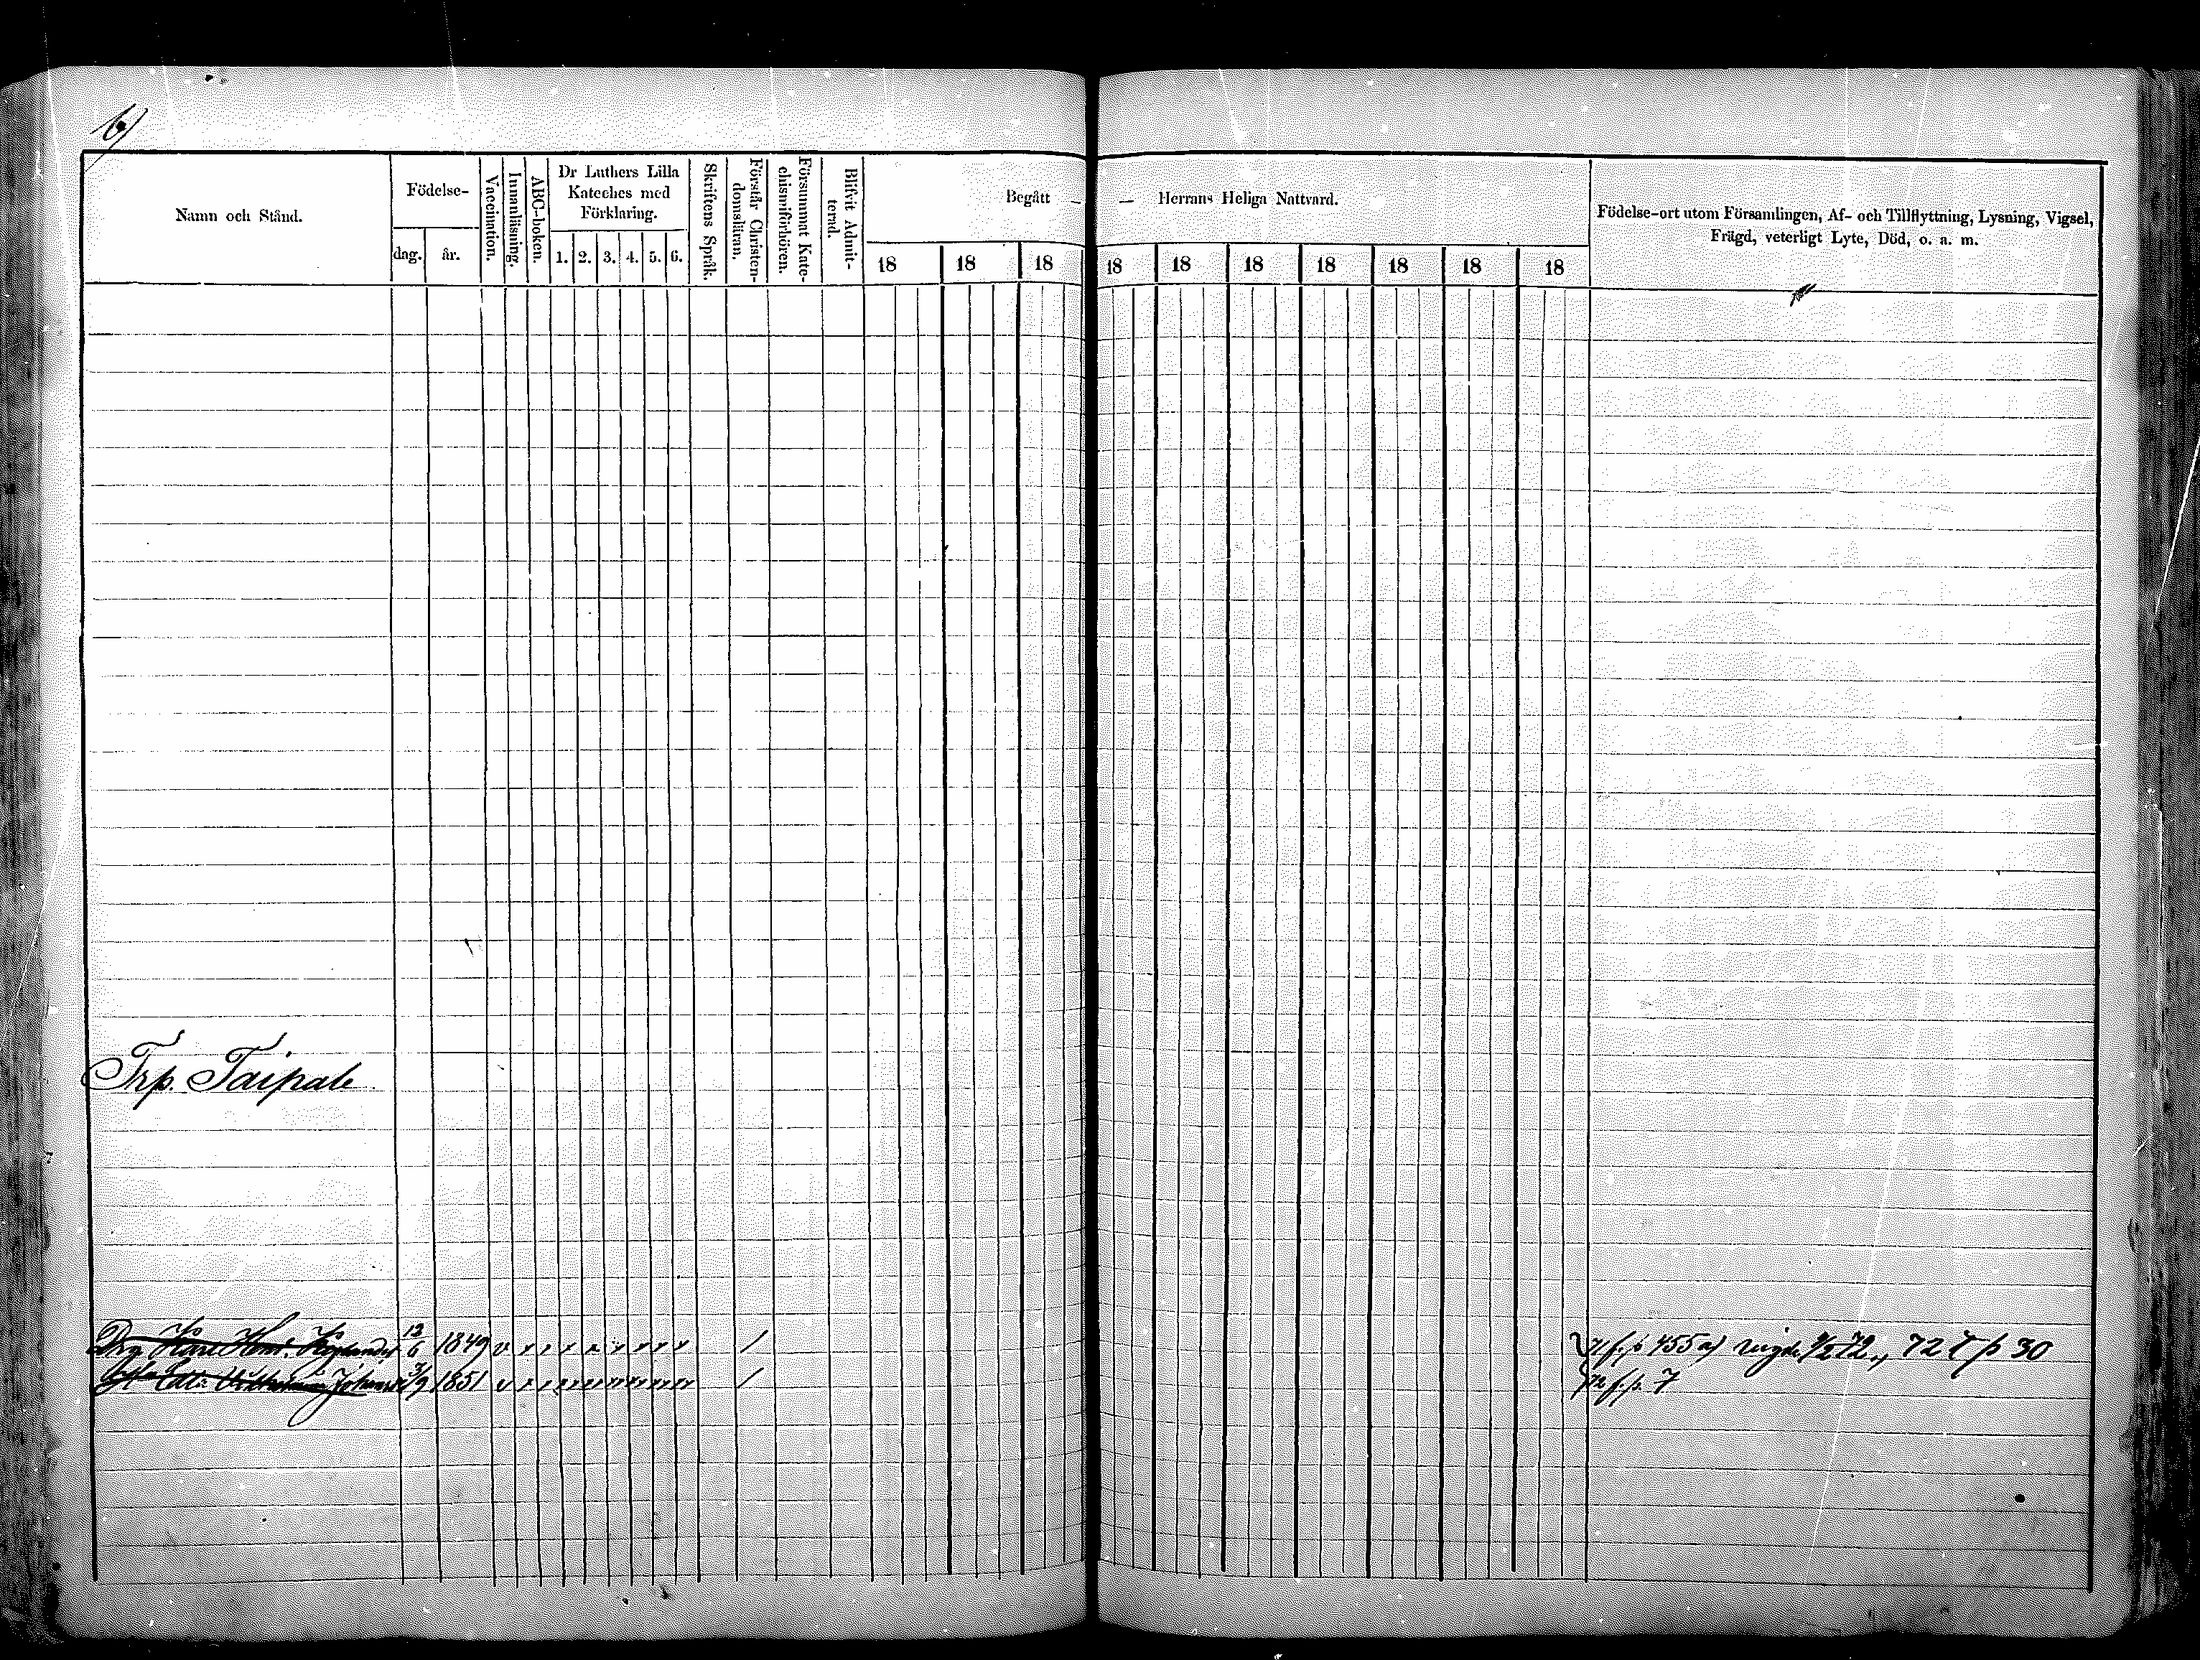 6)
Namn och Stånd.
Födelse-
dag.
år.
Vaccination.
Innanläsning.
ABC-boken.
Dr Luthers Lilla
Kateches med
Förklaring.
1. 2. 3. 4. 5. 6.
Skriftens Språk.
Förstår Christen-
domsläran.
Försummat Kate-
chismiförhören.
Blifvit Admit-
terad.
Begått — — Herrans Heliga Nattvard.
18 18 18 18 18 18 18 18 18 18
Födelse-ort utom Församlingen, Af- och Tillflyttning, Lysning, Vigsel,
Frägd, veterligt Lyte, Död, o. a. m.
Trp. Taipale
Drg Karl 12/6 1849 71 f. p 455 72 T p 30
1851 72 f. p. 7